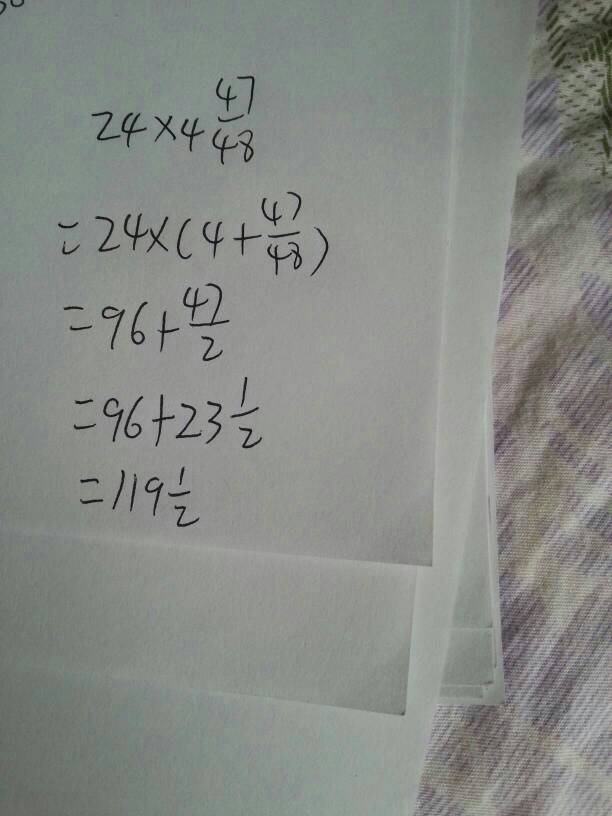 24×4 47/48
=24×(4+47/48)
=96+47/2
=96+23 1/2
=119 1/2